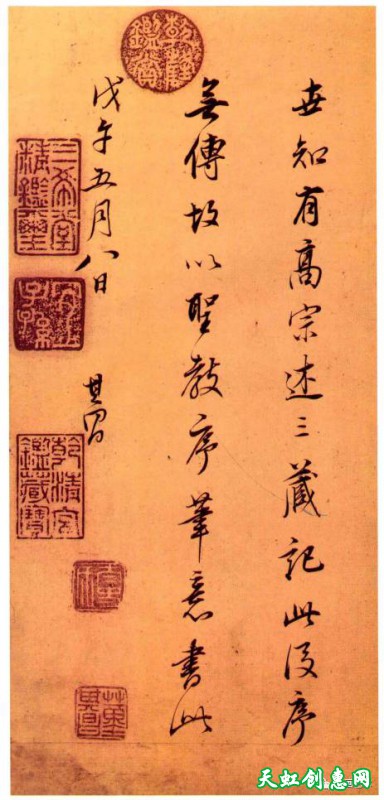 世知有高宗述三藏記此後序
無傳故以聖教序筆意書此
戊午五月八日
其昌
乾隆鑑賞
三希堂精鑑璽
宜子孫
乾清宮鑑藏寶
董其昌
天虹创惠网